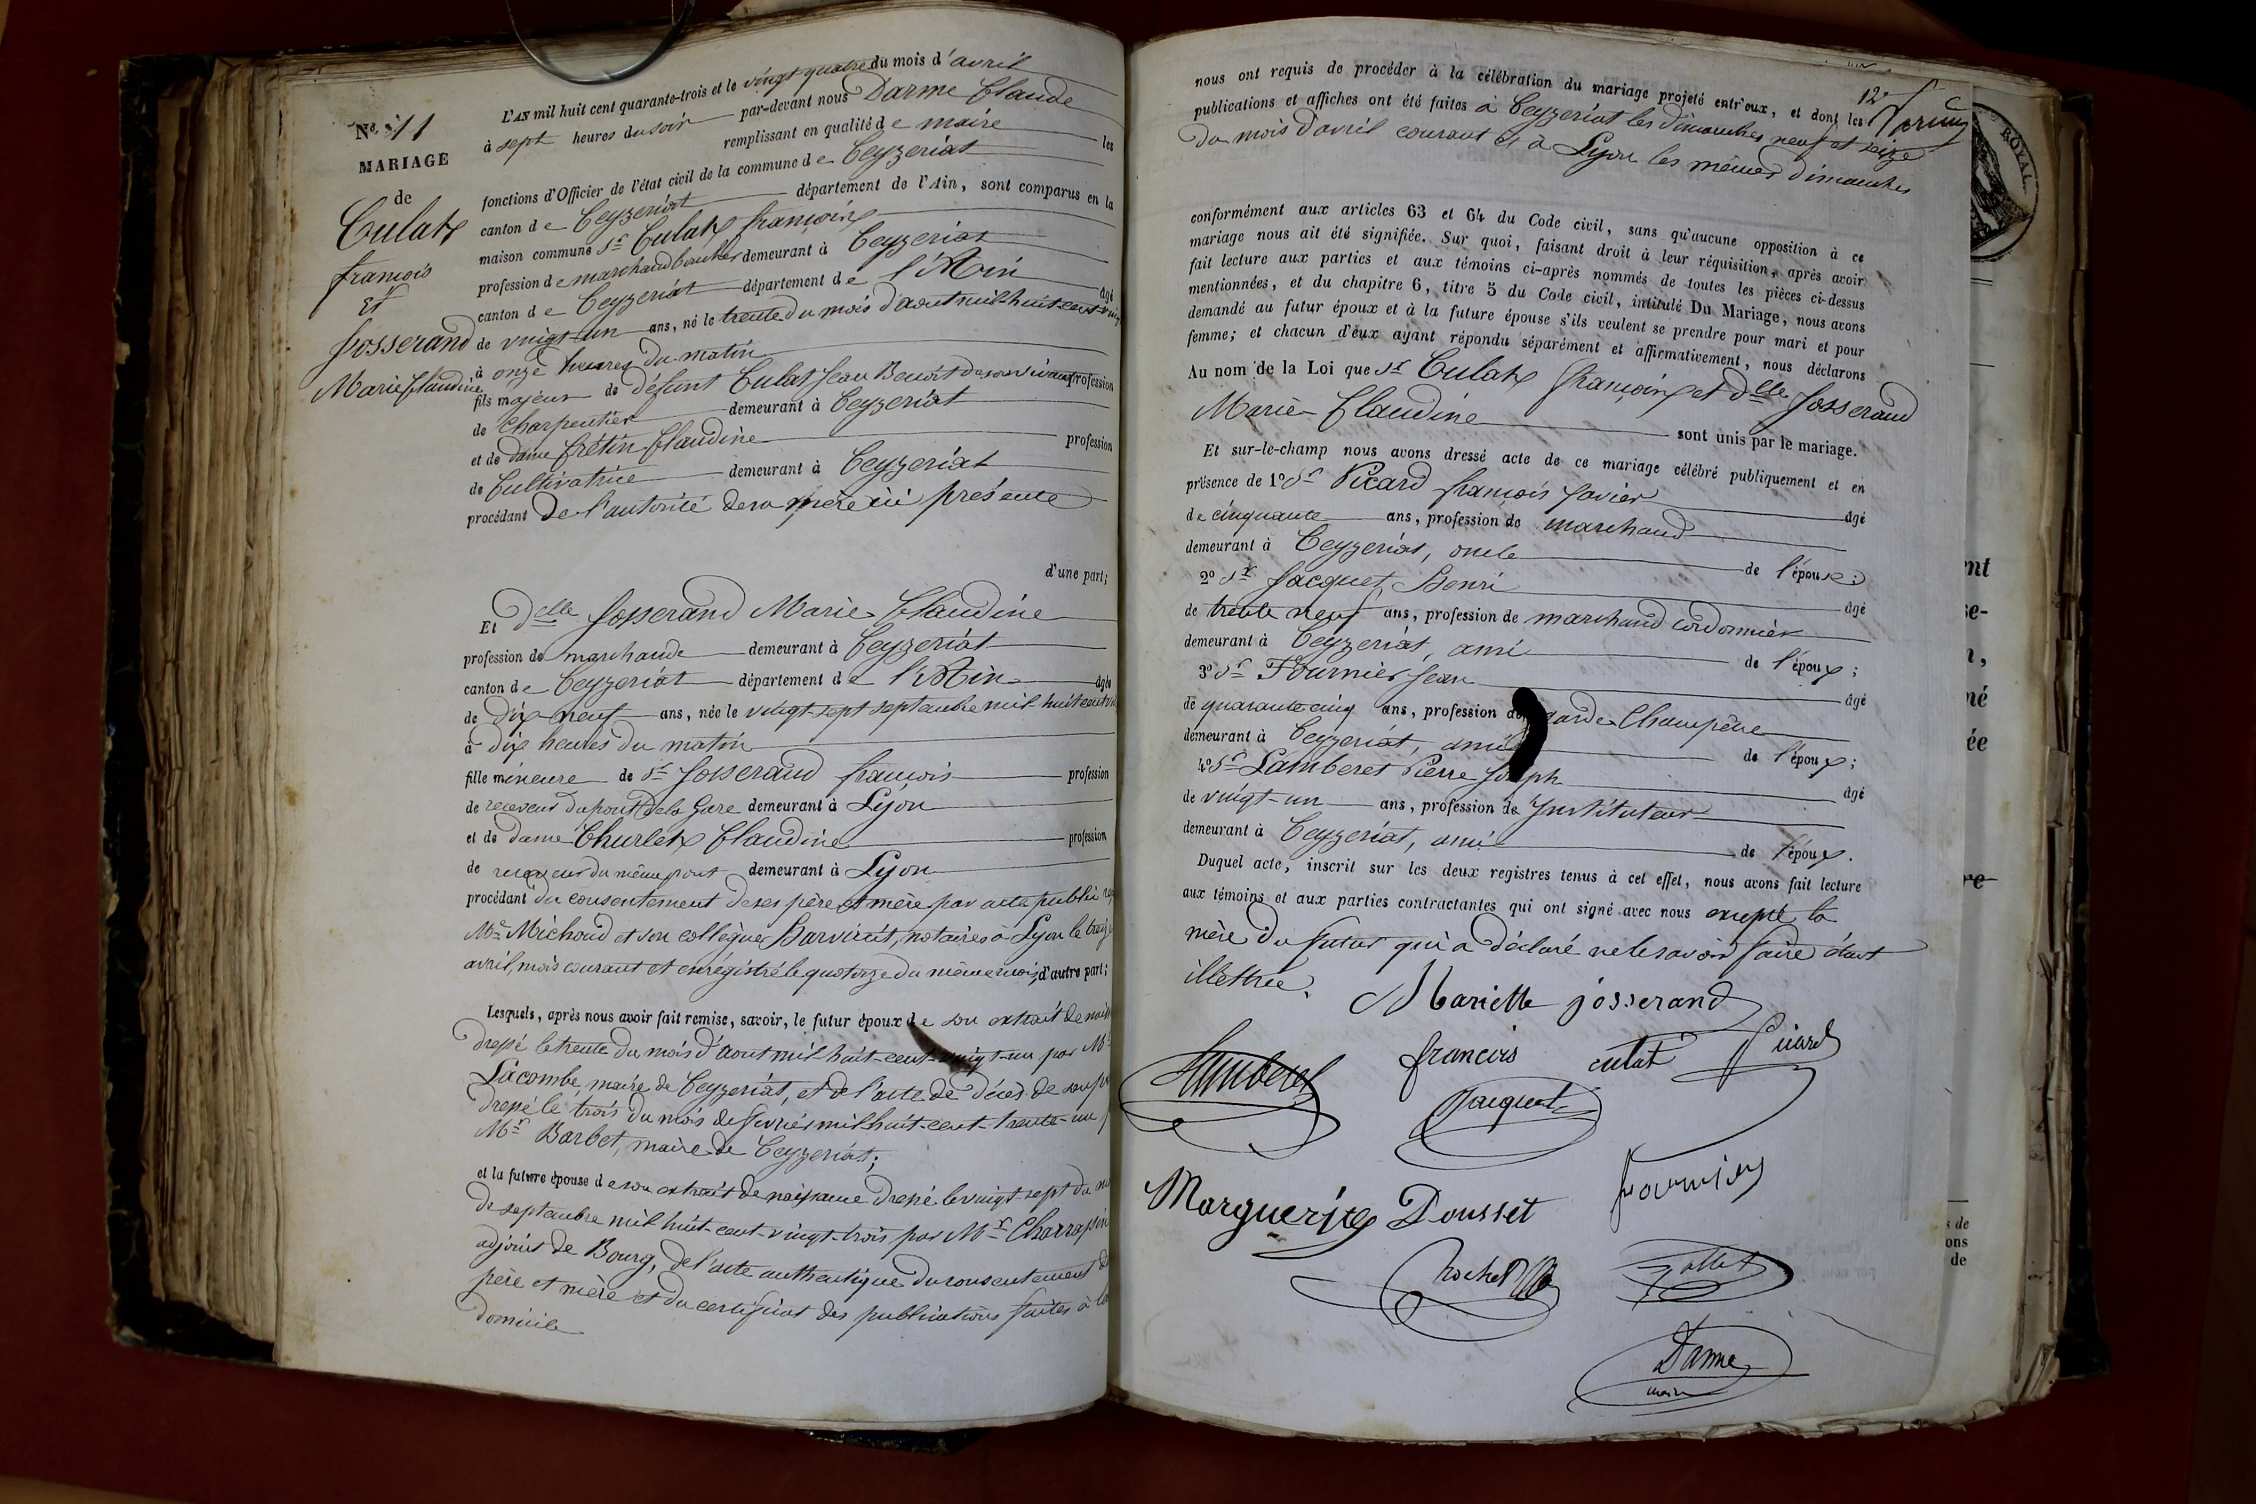 N° 11
MARIAGE
de
Culat
françois
Et
Josserand
Marie Claudine
L'AN mil huit cent quarante-trois et le vingt quatre du mois d'avril
à sept heures du soir par-devant nous Darme Claude
remplissant en qualité de maire les
fonctions d'Officier de l'état civil de la commune de Ceyzeriat
canton de Ceyzeriat département de l'Ain, sont comparus en la
maison commune Sr Culat françois
profession de marchand boucher demeurant à Ceyzeriat
canton de Ceyzeriat département de l'Ain âgé
de vingt-un ans, né le trente du mois d'aout mil huit cent vingt
à onze heures du matin
fils majeur de défunt Culat Jean Benoit de son vivant profession
de Charpentier demeurant à Ceyzeriat
et de dame frétin Claudine profession
de Cultivatrice demeurant à Ceyzeriat
procédant De l'autorité de sa mère ici présente
d'une part;
Et Delle Josserand Marie Claudine
profession de marchande demeurant à Ceyzeriat
canton de Ceyzeriat département de l'Ain âgée
de Dix neuf ans, née le vingt-sept septembre mil huit cent
à Dix heures du matin
fille mineure de Sr Josserand françois profession
de receveur du pont de la Gare demeurant à Lyon
et de dame Churlet Claudine profession
de receveur du même pont demeurant à Lyon
procédant du consentement de ses père et mère par acte public
Me Michoud et son collègue notaires à Lyon le
avril, mois courant et enrégistré le quatorze du même mois, d'autre part;
Lesquels, après nous avoir fait remise, savoir, le futur époux de son extrait de
dressé le trente du mois d'aout mil huit-cent-vingt-un par Mr
Lacombe, maire de Ceyzeriat, et de l'acte de décès de son
dressé le trois du mois de février mil huit-cent-trente-un
Mr Barbet, maire de Ceyzeriat;
et la future épouse de son extrait de naissance dressé le vingt sept du
de septembre mil huit-cent-vingt-trois par Mr Charrassin
adjoint de Bourg, de l'acte authentique du consentement
père et mère et du certificat des publications faites à
domicile
12e
nous ont requis de procéder à la célébration du mariage projeté entr'eux, et dont les
publications et affiches ont été faites à Ceyzeriat les dimanches neuf et seize
du mois d'avril courant et à Lyon les mêmes dimanches
conformément aux articles 63 et 64 du Code civil, sans qu'aucune opposition à ce
mariage nous ait été signifiée. Sur quoi, faisant droit à leur réquisition, après avoir
fait lecture aux parties et aux témoins ci-après nommés de toutes les pièces ci-dessus
mentionnées, et du chapitre 6, titre 5 du Code civil, intitulé Du Mariage, nous avons
demandé au futur époux et à la future épouse s'ils veulent se prendre pour mari et pour
femme; et chacun d'eux ayant répondu séparément et affirmativement, nous déclarons
Au nom de la Loi que Sr Culat françois et Delle Josserand
Marie Claudine sont unis par le mariage.
Et sur-le-champ nous avons dressé acte de ce mariage célébré publiquement et en
présence de 1° Sr Picard françois Xavier âgé
de cinquante ans, profession de marchand
demeurant à Ceyzeriat, oncle de l'épouse;
2° Sr Jacquet, Henri âgé
de trente neuf ans, profession de marchand cordonnier
demeurant à Ceyzeriat, ami de l'époux;
3° Sr Fournier Jean âgé
de quarante cinq ans, profession de garde Champêtre
demeurant à Ceyzeriat, ami de l'époux;
4° Sr Lamberet Pierre Joseph âgé
de vingt-un ans, profession de Instituteur
demeurant à Ceyzeriat, ami de l'époux.
Duquel acte, inscrit sur les deux registres tenus à cet effet, nous avons fait lecture
aux témoins et aux parties contractantes qui ont signé avec nous excepté la
mère du futur qui a déclaré ne le savoir faire étant
illettrée.
Mariette josserand
Lamberet
francois culat
Picard
Jacquet
Fournier
Marguerite Dousset
Rochet
Darme
maire
ROYAL